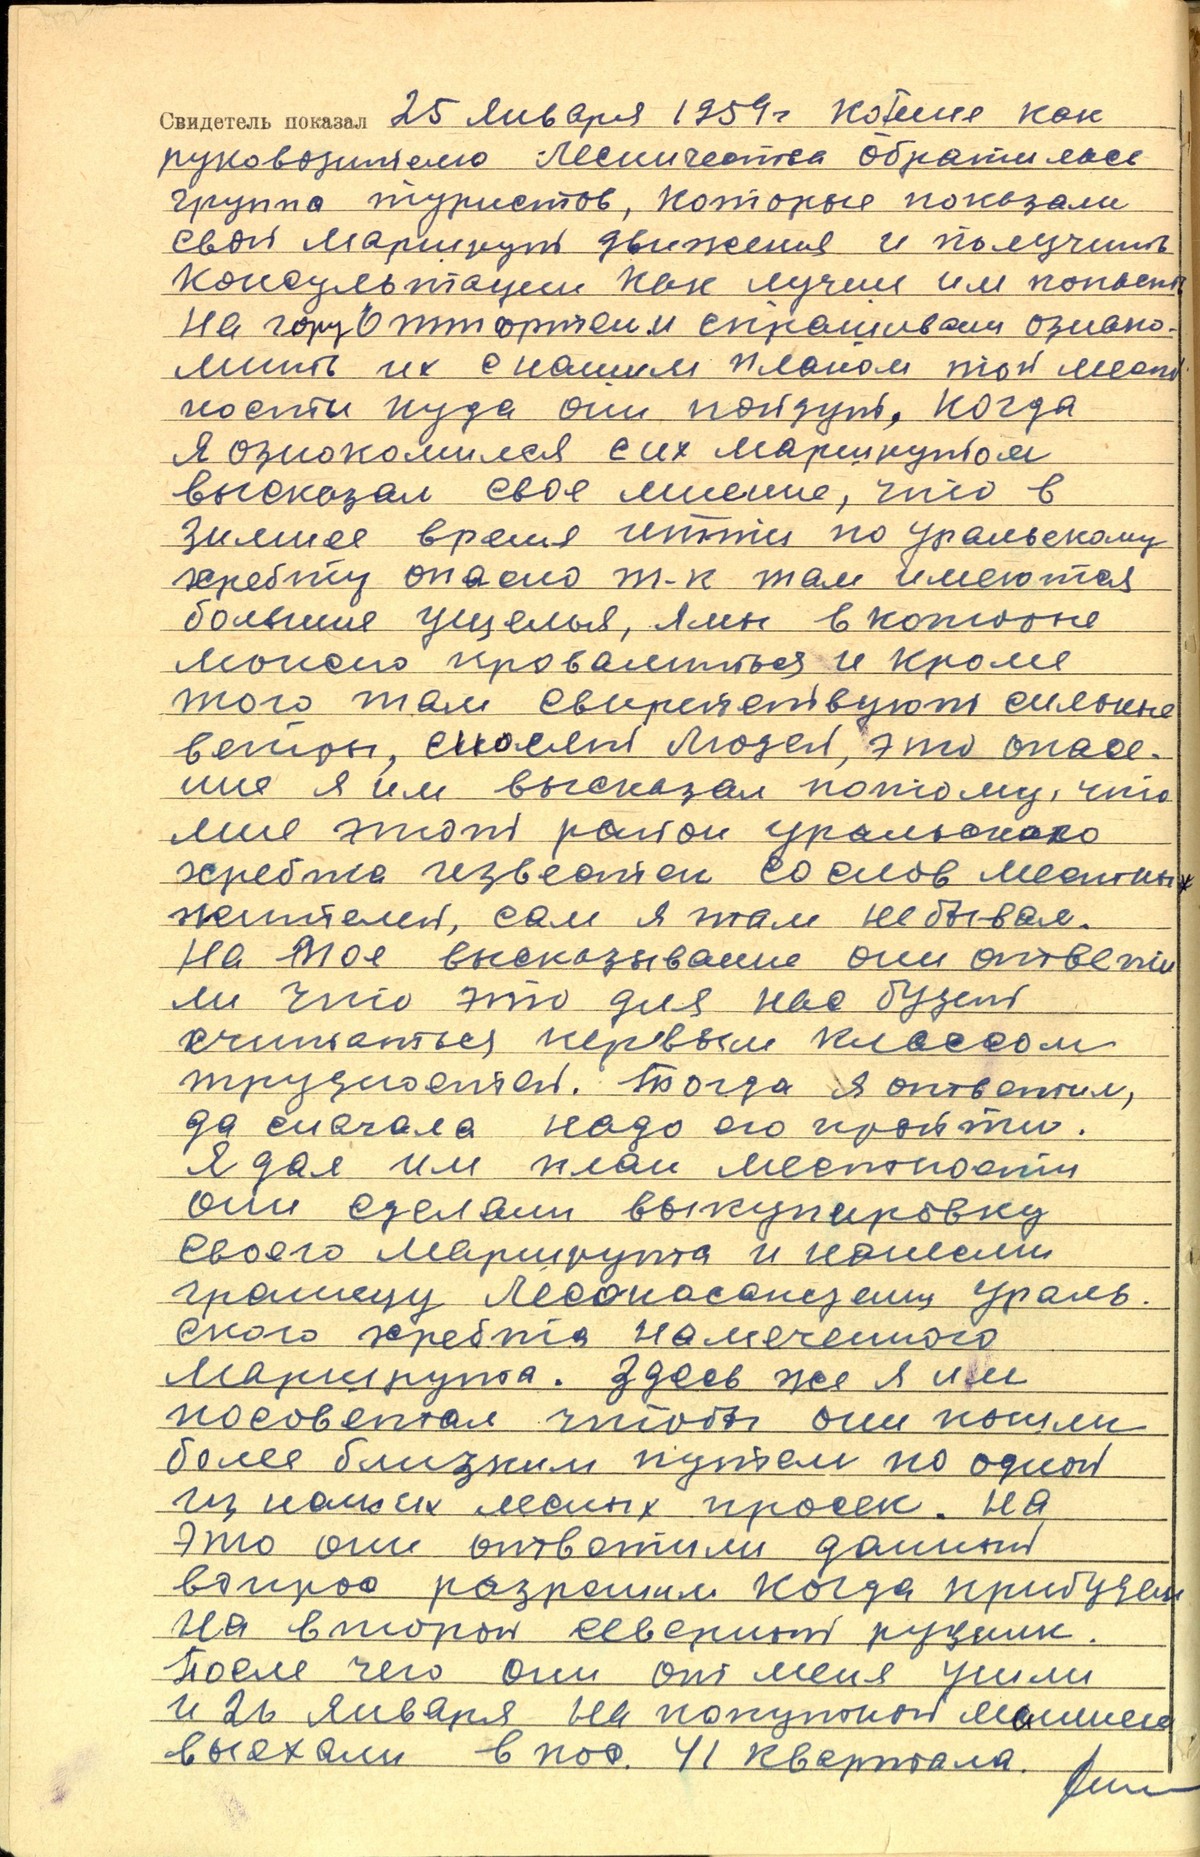 Свидетель показал 25 января 1959г ко мне как
руководителю Лесничества обратилась
группа туристов, которые показали
свой маршрут движения и получить
консультации как лучше им попасть
на гору Оттортен и спрашивали ознако-
мить их с нашим планом той мест
ности куда они пойдут, когда
я ознакомился с их маршрутом
высказал свое мнение, что в
зимнее время итти по Уральскому
хребту опасно т-к там имеются
большие ущелья, ямы в которые
можно провалиться и кроме
того там свирепствуют сильные
ветры, сносят людей, это опасе-
ние я им высказал потому, что
мне этот район уральского
хребта известен со слов местных
жителей, сам я там не бывал.
На мое высказывание они ответи
ли что это для нас будет
считаться первым классом
трудностей. Тогда я ответил,
да сначала надо его пройти.
Я дал им план местности
они сделали выкупировку
своего маршрута и нанесли
границу Ураль-
ского хребта намеченного
маршрута. Здесь же я им
посоветал чтобы они пошли
более близким путем по одной
из наших лесных просек. На
это они ответили данный
вопрос разрешим когда прибудем
на второй северный рудник.
После чего они от меня ушли
и 26 января на попутной машине
выехали в пос. 41 квартала.